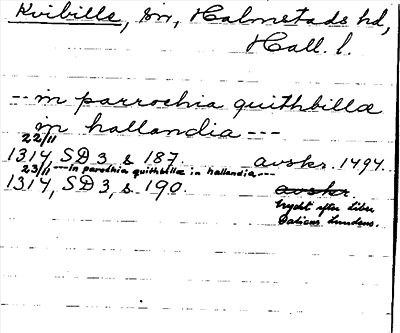 Kvibille, sn, Halmstads hd,
Hall. l.
-- in parrochia quithbillæ
in hallandia ---
22/11
1314, SD 3, s 187. avskr. 1494.
23/11 --- in parochia quithbillæ in hallandia ---
1314, SD 3, s. 190. avskr.
tryckt efter Liber
Daticus Lundens.